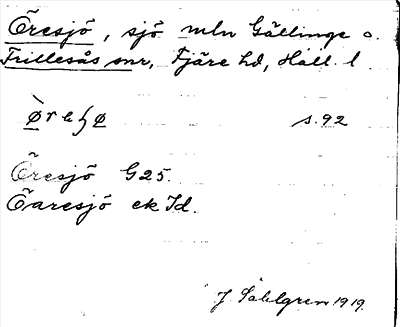 Öresjö, sjö mln Gällinge o.
Frillesås snr, Fjäre hd, Hall. l.
s. 92
Öresjö G 25.
Öaresjö ek Id.
J. Sahlgren 1919.